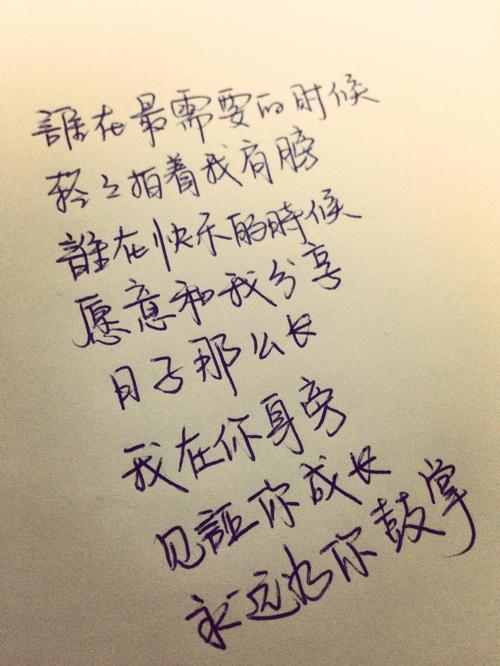 誰在最需要的时候
轻轻拍着我肩膀
誰在快乐的時候
愿意和我分享
日子那么长
我在你身旁
见証你成长
永远为你鼓掌